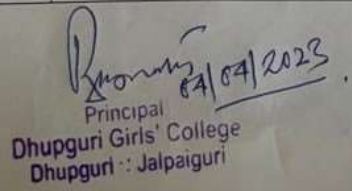 04/04/2023
Principal
Dhupguri Girls' College
Dhupguri :: Jalpaiguri